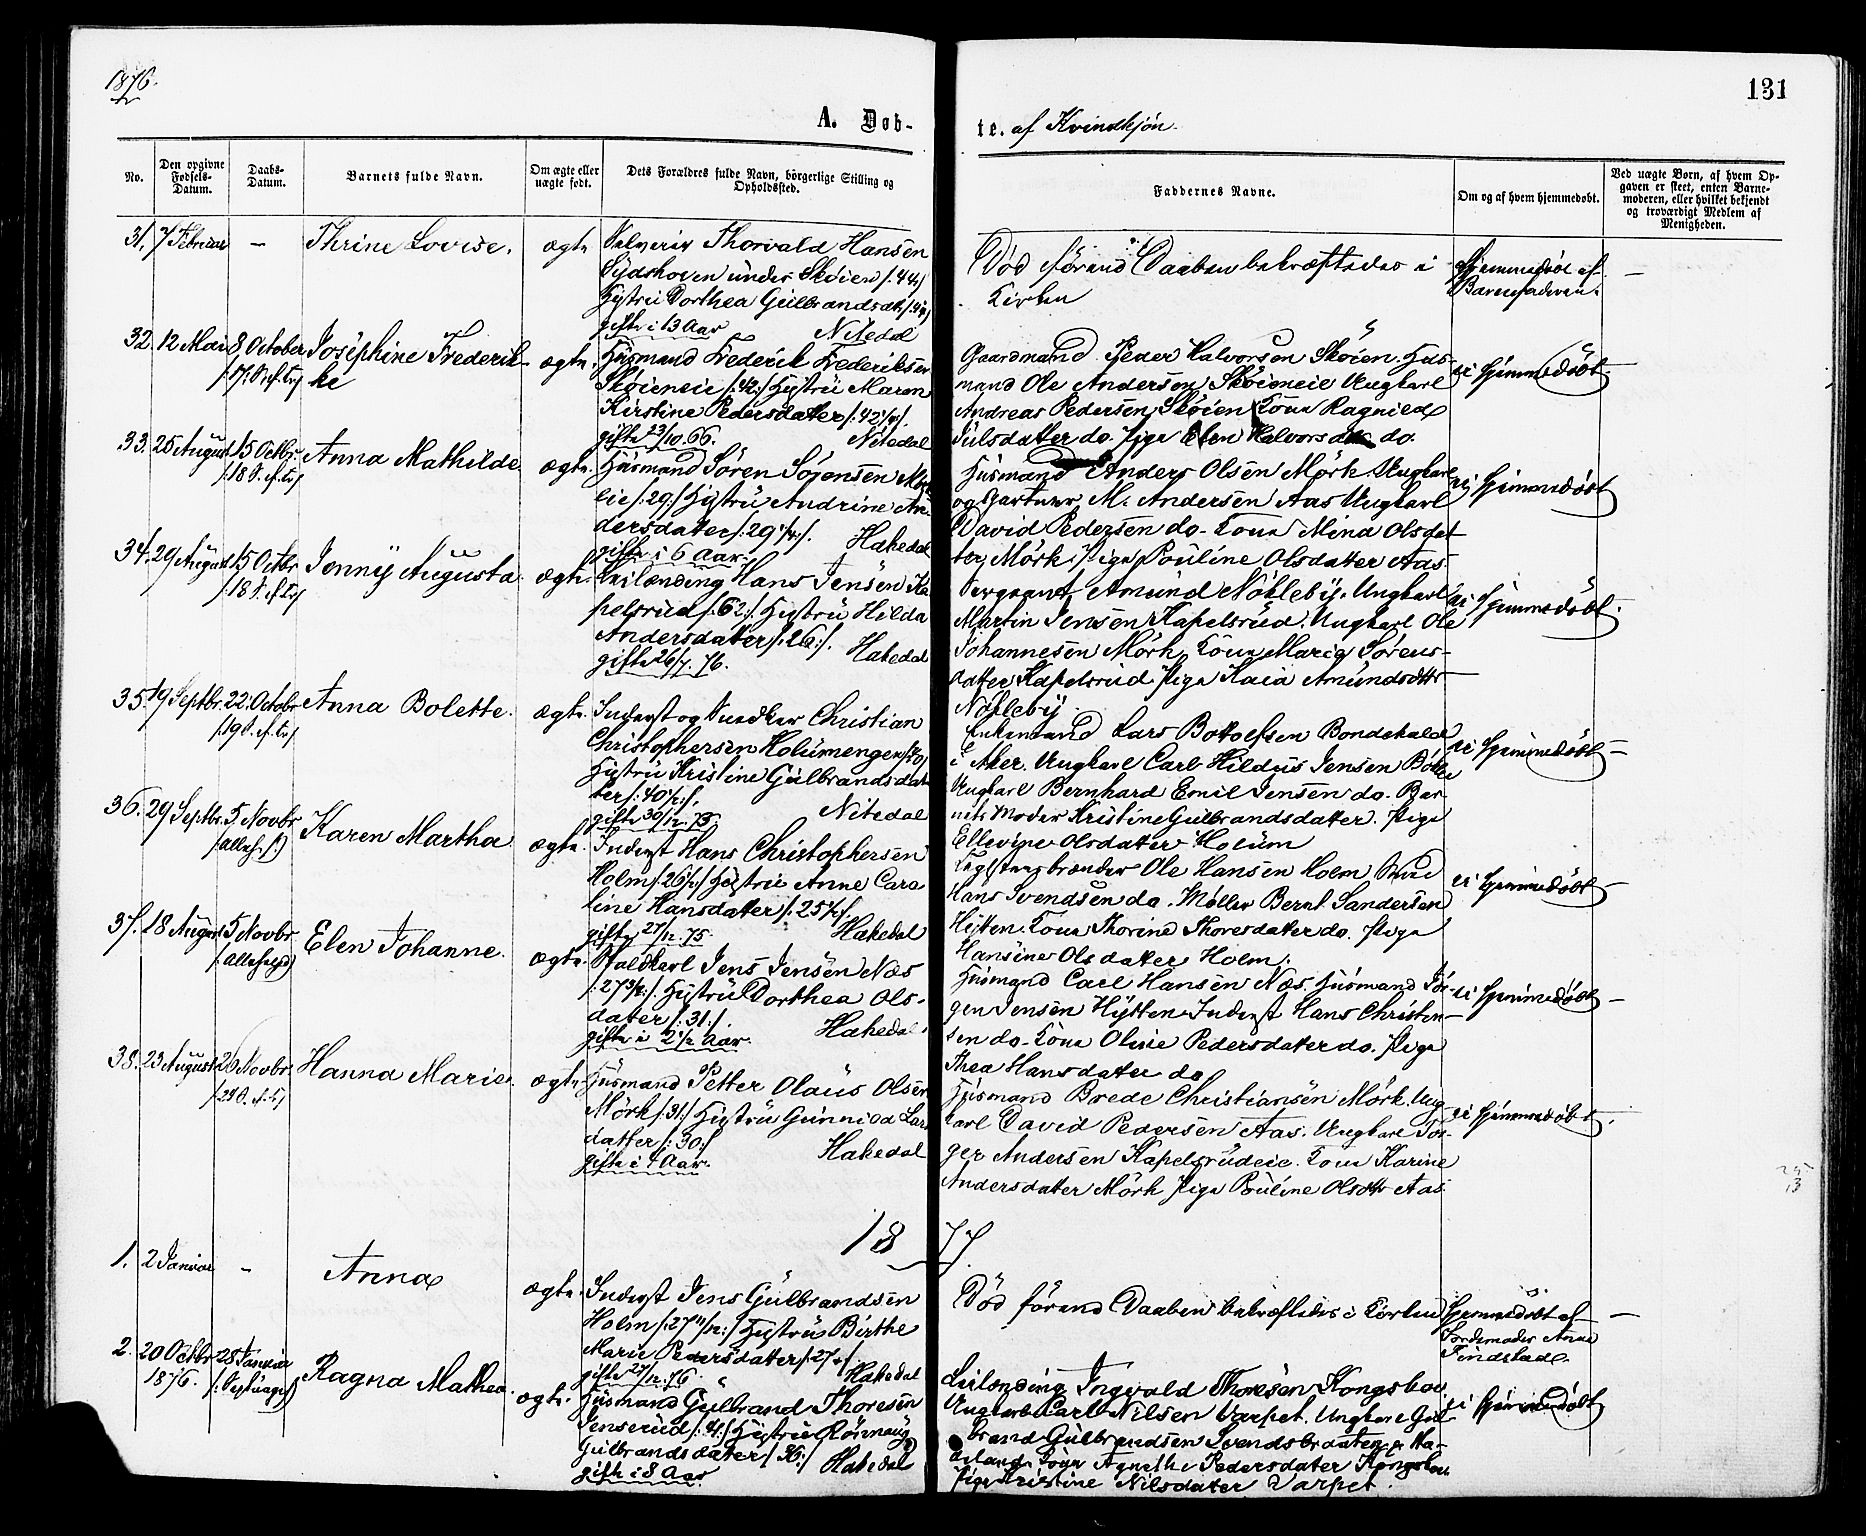 1876.
131
A. Døb-
te. af Kvindkjøn.
No.
Den opgivne
Fødsels-
Datum.
Daabs-
Datum.
Barnets fulde Navn.
Om ægte eller
uægte født.
Dets Forældres fulde Navn, börgerlige Stilling og
Opholdssted.
Faddernes Navne.
Om og af hvem hjemmedøbt.
Ved uægte Børn, af hvem Op-
gaven er skeet, enten Barne-
moderen, eller hvilket bekjendt
og troværdigt Medlem af
Menigheden.
31. 7 Februar - Thrine Lovise. ægte
Thorvald Hansen
under Skøien /:44:/
Hystru Dorthea Gulbrandsdtr
gifte i 13 Aar Nitedal
Død førend Daaben bekræftedes i
Kirken
Hjemmedøbt af
Barnefaderen. -
32. 12 Mai 8 October Josephine Frederik-
ke
/:17. S. ef. Tr:/
ægte.
Husmand Frederik Frederiksen
Skøieneie /:42:/ Hystru Maren
Kirstine Pedersdatter /:42 /:
gifte 23/10.66. Nitedal
Gaardmand Peder Halvorsen Skøien. Hus-
mand Ole Andersen Skøieneie Ungkarl
Andreas Pedersen Skøien Kone Ragnild
Julsdatter do. Pige Elen Halvorsdatter do.
ei hjemmedøbt.
33. 25 August 15 Octbr. Anna Mathilde.
/:18 S. ef. Tr:/
ægte.
Husmand Søren Sørensen Mørk-
eie /:29:/ Hystru Andrine An-
dersdatter /:29 /:
gifte i 6 Aar. Hakedal
Husmand Anders Olsen Mørk. Ungkarl
og Gartner M. Andersen Aas Ungkarl
David Pedersen do. Kone Mina Olsdat
ter Mørk. Pige Pouline Olsdatter Aas.
ei hjemmedøbt
34. 29 August 15 Octbr Jenny Augusta.
/:18 S. ef. Tr:/
ægte.
Leilending Hans Jensen Ka
pelsrud /:62:/ Hystru Hilda
Andersdatter /:26:/.
gifte 26/7.76. Hakedal
Sergeant Amund Nökleby. Ungkarl
Martin Jensen Kapelsrud. Ungkarl Ole
Johannesen Mørk, Kone Marie Sørens-
datter Kapelsrud Pige Kaia Amundsdttr
Nökleby
ei hjemmedøbt.
35. 19 Septbr. 22 Octobr Anna Bolette.
/:19 S. ef. Tr:/
ægte.
Inderst og Snedker Christian
Christophersen Holumengen
Hystru Kristine Gulbrandsdat
ter /:40½:/.
gifte 30/12.75 Nitedal
Enkemand Lars Botolfsen Bondekald
i Aker. Ungkarl Carl Hildus Jensen
Ungkarl Bernhard Emil Jensen do. Bar-
nets Moder Kristine Gulbrandsdatter. Pige
Ellevine Olsdatter Holum
ei hjemmedøbt -
36. 29 Septbr. 5 Novbr. Karen Martha
ægte.
Inderst Hans Christophersen
Holm /:26½:/ Hystru Anne Caro
line Hansdatter /:25½:/.
gifte 27/12.75 Hakedal
Teglstensbrænder Ole Hansen Holm
Hans Svendsen do. Møller Bernt Sandersen
Hytten. Kone Thorine Thoresdatter do. Pige
Hansine Olsdatter Holm.
ei hjemmedøbt
37. 18 August 5 Novbr. Elen Johanne.
ægte.
Staldkarl Jens Jensen Næs
/:27¾:/. Hystru Dorthea Ols-
datter /:31:/.
gifte i 2½ Aar. Hakedal.
Husmand Carl Hansen Næs. Husmand Jør-
gen Jensen Hytten. Inderst Hans Christen-
sen do. Kone Oline Pedersdater do. Pige
Thea Hansdater do
ei hjemmedøbt -
38. 23 August 26 Novbr. Hanna Marie.
ægte.
Husmand Petter Olaus Olsen
Mørk /:31:/ Hystru Gunnild Lars
datter /:30:/
gifte i 7 Aar. Hakedal
Husmand Brede Christiansen Mørk. Ung
karl David Pedersen Aas. Ungkarl Jör-
ger Andersen Kapelsrudeie. Kone Karine
Andersdatter Mørk Pige Pouline Olsdttr Aas
ei hjemmedøbt.
1877.
1. 2 Januar - Anna
ægte.
Inderst Jens Gulbrandsen
Holm /:27 11/12:/ Hystru Birthe
Marie Pedersdatter /:27 /
gifte 27/12.76. Hakedal
Død førend Daaben bekræftedes i Kirken
Hjemmedøbt af
Jordemoder Anna
Tindstad. -
2. 20 Octbr 1876. 28 Januar Ragna Mathea.
ægte.
Husmand Gulbrand Thoresen
Jenserud /:41:/ Hystru Rønnaug
Gulbrandsdatter /:36:/
gifte i 8 Aar Hakedal
Leilending Ingvald Thoresen Kongsboe
Ungkarl Carl Nilsen Varpet. Ungkarl Gul-
brand Gulbrandsen Svendsbraaten
Kone Agnethe Pedersdater Kongsboe
Pige Kristine Nilsdater Varpet.
ei hjemmedøbt